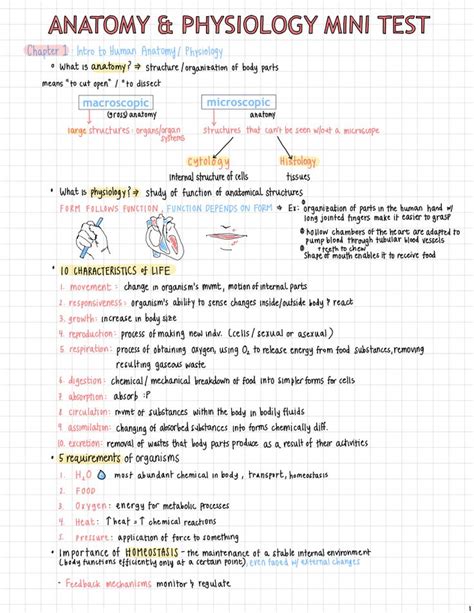 ANATOMY & PHYSIOLOGY MINI TEST
Chapter 1: Intro to Human Anatomy/ Physiology
• What is anatomy? ⇒ structure/organization of body parts
means "to cut open" / "to dissect
macroscopic microscopic
(gross) anatomy anatomy
large structures: organs/organ systems
structures that can't be seen w/out a microscope
Cytology Histology
internal structure of cells tissues
• What is physiology? ⇒ study of function of anatomical structures
FORM FOLLOWS FUNCTION, FUNCTION DEPENDS ON FORM ⇒ Ex: • organization of parts in the human hand w/
long jointed fingers make it easier to grasp
• hollow chambers of the heart are adapted to
pump blood through tubular blood vessels
• + teeth to chew
Shape of mouth enables it to receive food
• 10 CHARACTERISTICS of LIFE
1. movement: change in organism's mvmt, motion of internal parts
2. responsiveness: organism's ability to sense changes inside/outside body & react
3. growth: increase in body size
4. reproduction: process of making new indv. (cells/ sexual or asexual)
5. respiration: process of obtaining oxygen, using O₂ to release energy from food substances, removing
resulting gaseous waste
6. digestion: chemical/ mechanical breakdown of food into simpler forms for cells
7. absorption: absorb :P
8. circulation: mvmt of substances within the body in bodily fluids
9. assimilation: changing of absorbed substances into forms chemically diff.
10. excretion: removal of wastes that body parts produce as a result of their activities
• 5 requirements of organisms
1. H₂O most abundant chemical in body, transport, homeostasis
2. FOOD
3. Oxygen: energy for metabolic processes
4. Heat: ↑ heat = ↑ chemical reactions
5. Pressure: application of force to something
• Importance of HOMEOSTASIS - the maintenance of a stable internal environment
(body functions efficiently only at certain concentrations/conditions), even faced w/ external changes
- Feedback mechanisms monitor & regulate
1